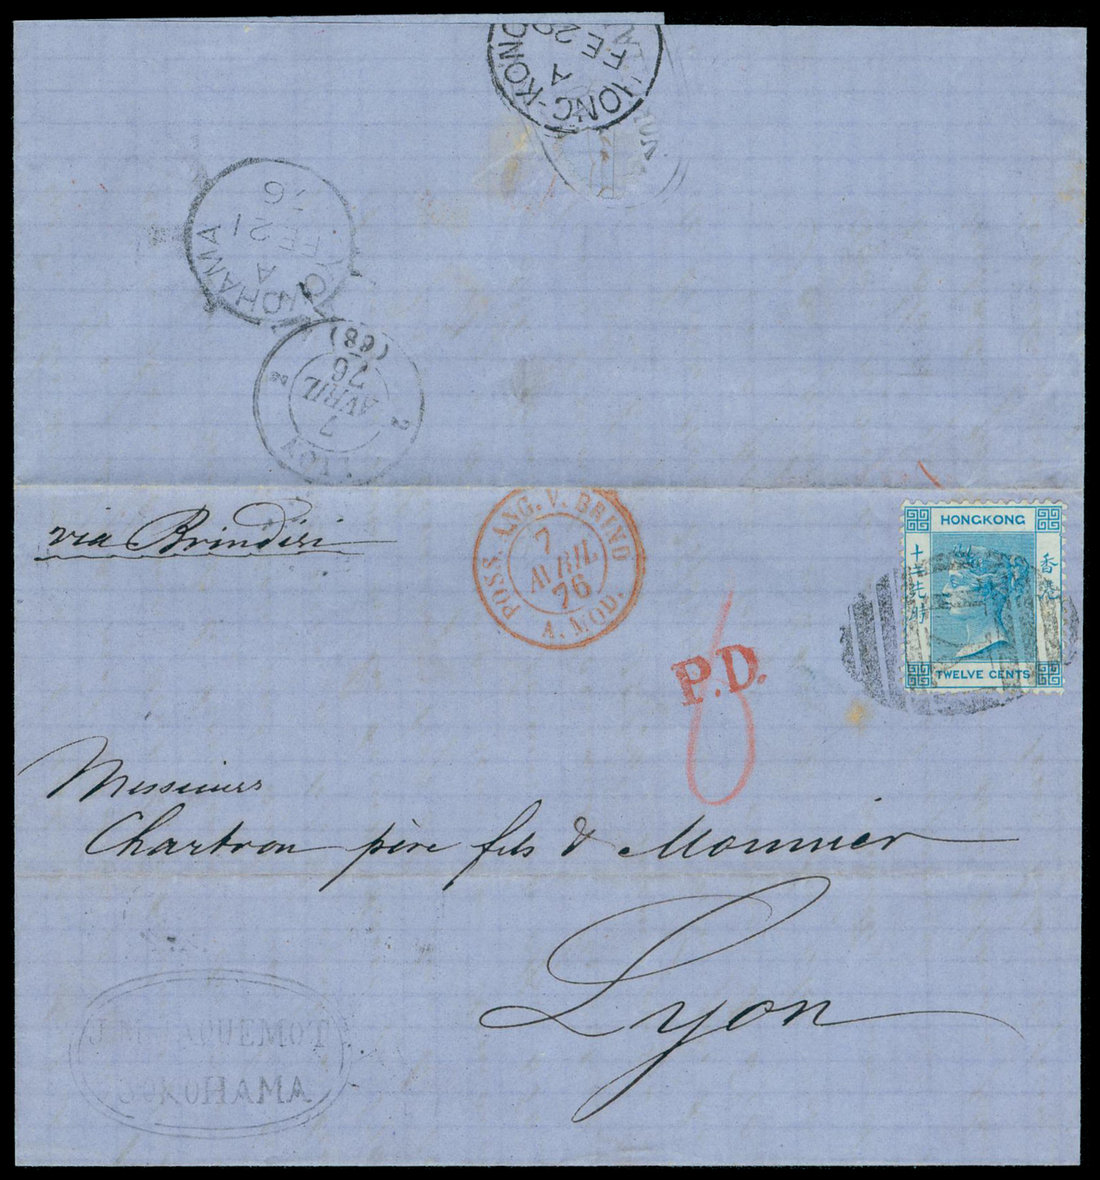 HONG-KONG
A
FE 29
YOKOHAMA
A
FE 21
76
LYON
2 2
7
AVRIL
76
(68)
via Brindisi
POSS. ANG. V. BRIND
7
AVRIL
76
A. MOD.
HONGKONG
香港
TWELVE CENTS
P.D.
Messieurs
Chartron père fils & Monnier
Lyon
JACQUEMOT
YOKOHAMA